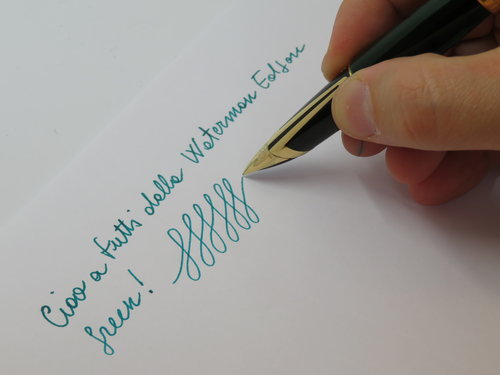 Ciao a tutti dalla Waterman Edson
Green!